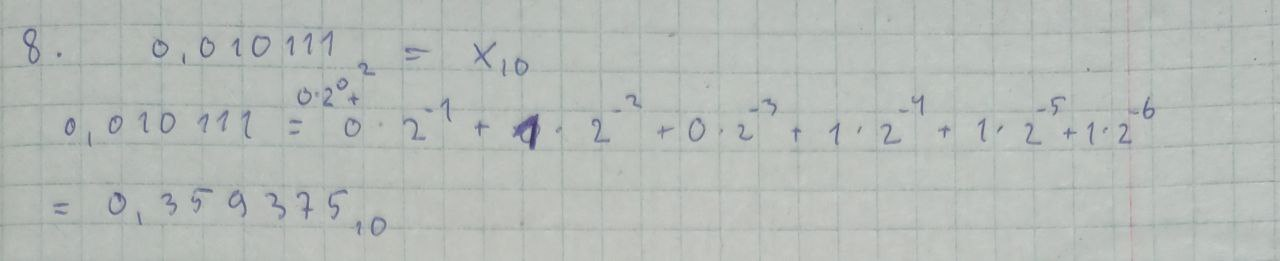 8. 0,010111₂ = X₁₀
0·2⁰+
0,010111 = 0·2⁻¹ + 1·2⁻² + 0·2⁻³ + 1·2⁻⁴ + 1·2⁻⁵ + 1·2⁻⁶
= 0,359375₁₀